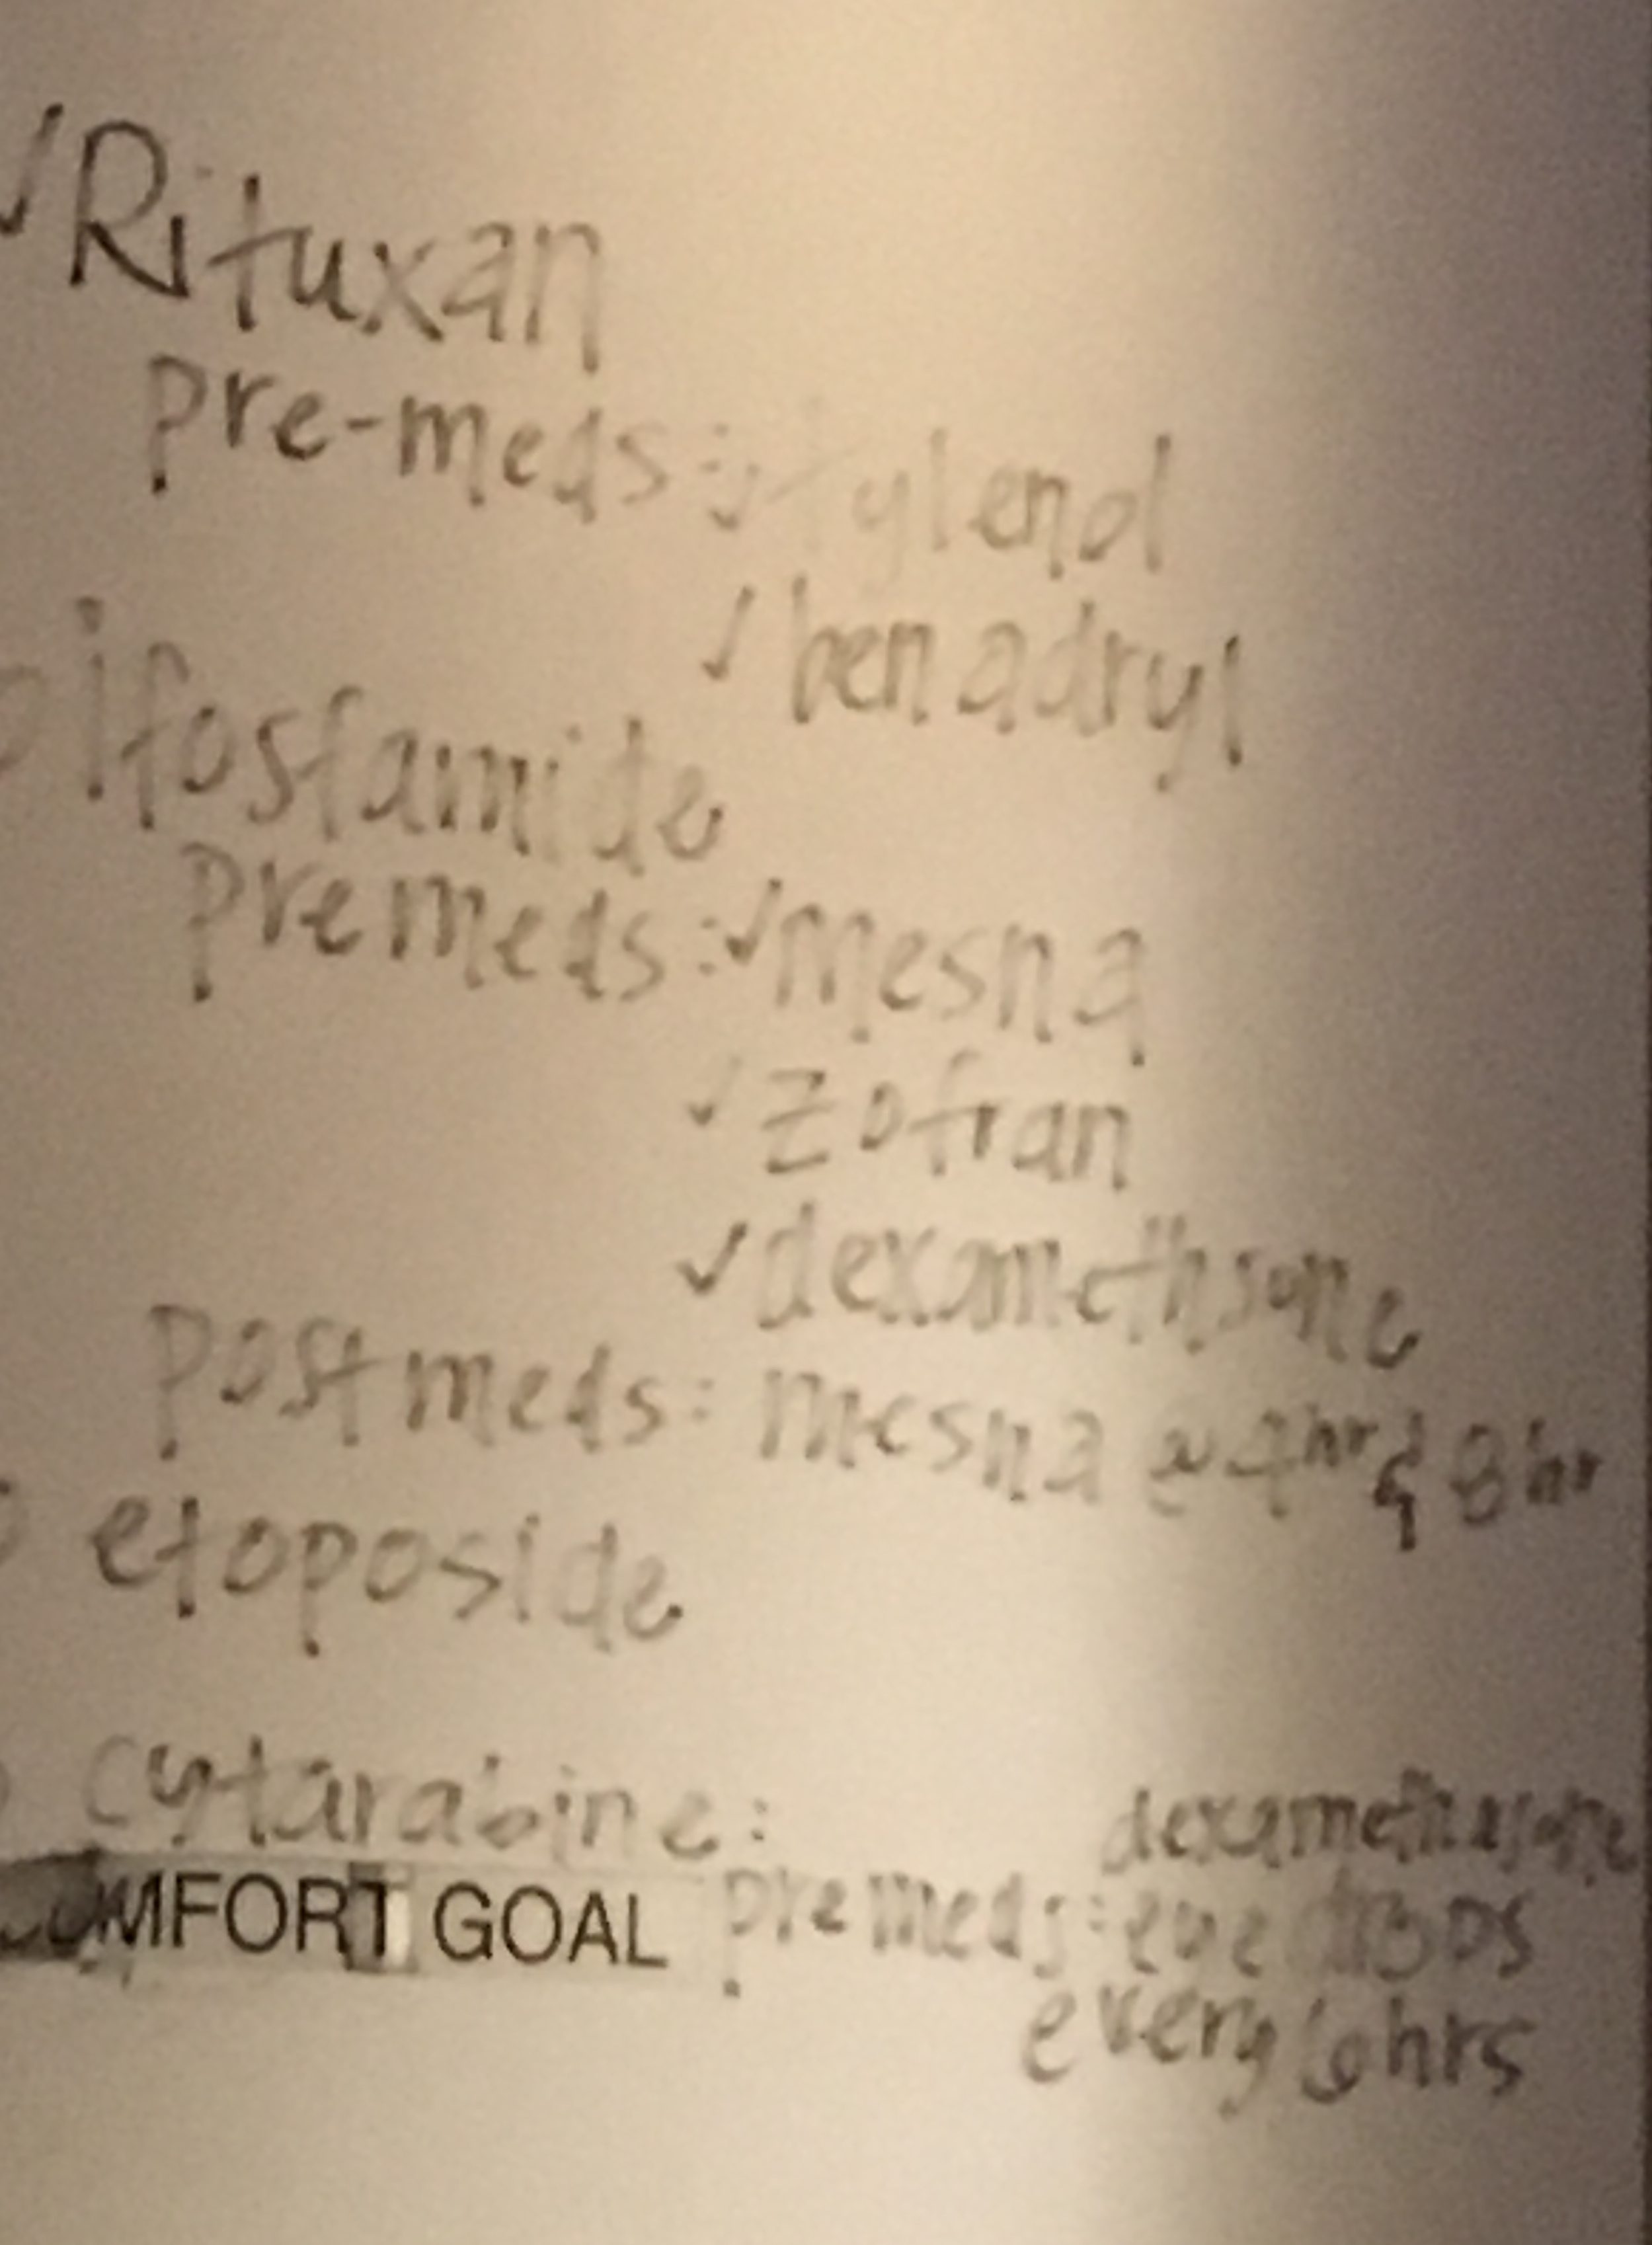 ✓Rituxan
pre-meds: ✓tylenol
✓benadryl
ifosfamide
premeds: ✓mesna
✓zofran
✓dexamethsone
postmeds: mesna @ 4hr & 8hr
etoposide
cytarabine:
dexamethasone
COMFORT GOAL premeds: eye drops
every 6hrs